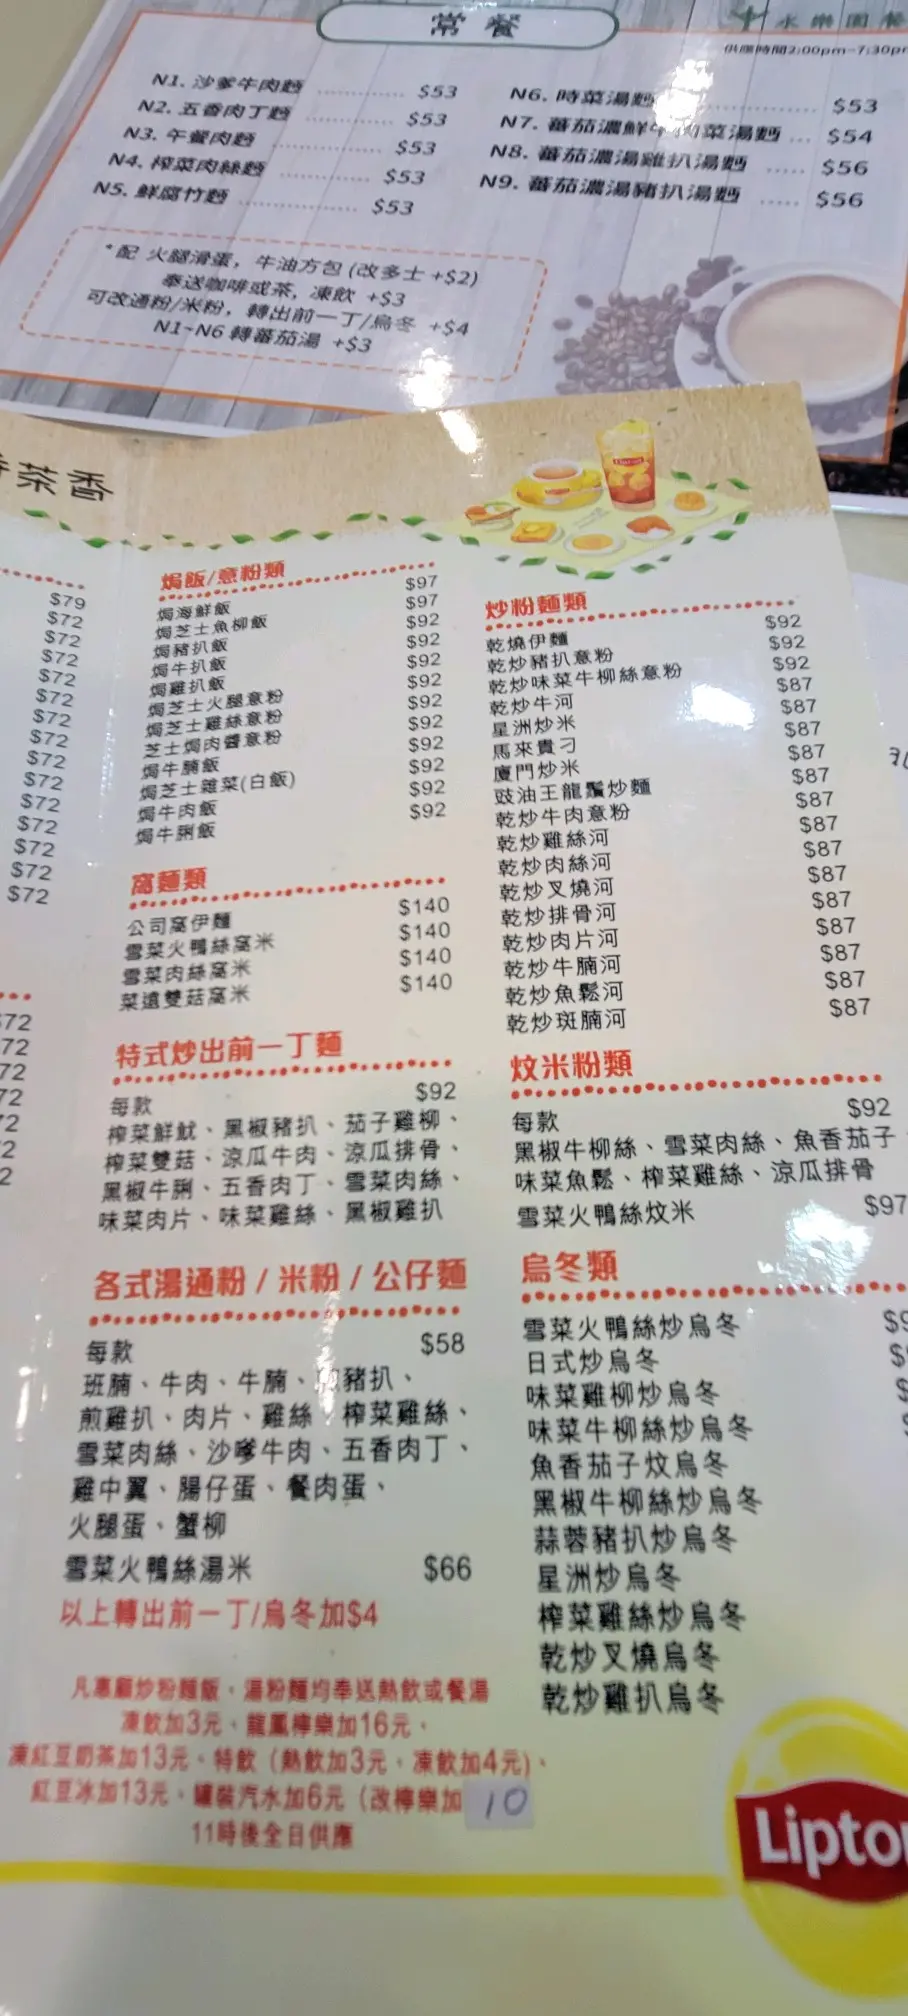 常餐
永樂園餐
供應時間2:00pm-7:30pm
N1. 沙爹牛肉麵 $53
N2. 五香肉丁麵 $53
N3. 午餐肉麵 $53
N4. 榨菜肉絲麵 $53
N5. 鮮腐竹麵 $53
N6. 時菜湯麵 $53
N7. 蕃茄濃鮮牛肉菜湯麵 $54
N8. 蕃茄濃湯雞扒湯麵 $56
N9. 蕃茄濃湯豬扒湯麵 $56
*配 火腿滑蛋, 牛油方包 (改多士 +$2)
奉送咖啡或茶, 凍飲 +$3
可改通粉/米粉, 轉出前一丁/烏冬 +$4
N1~N6 轉蕃茄湯 +$3
茶香
$79
$72
$72
$72
$72
$72
$72
$72
$72
$72
$72
$72
$72
$72
$72
焗飯/意粉類
焗海鮮飯 $97
焗芝士魚柳飯 $97
焗豬扒飯 $92
焗牛扒飯 $92
焗雞扒飯 $92
焗芝士火腿意粉 $92
焗芝士雞絲意粉 $92
芝士焗肉醬意粉 $92
焗牛腩飯 $92
焗芝士雜菜(白飯) $92
焗牛肉飯 $92
焗牛脷飯 $92
窩麵類
公司窩伊麵 $140
雪菜火鴨絲窩米 $140
雪菜肉絲窩米 $140
菜遠雙菇窩米 $140
特式炒出前一丁麵
每款 $92
榨菜鮮魷、黑椒豬扒、茄子雞柳、
榨菜雙菇、涼瓜牛肉、涼瓜排骨、
黑椒牛脷、五香肉丁、雪菜肉絲、
味菜肉片、味菜雞絲、黑椒雞扒
各式湯通粉 / 米粉 / 公仔麵
每款 $58
班腩、牛肉、牛腩、豬扒、
煎雞扒、肉片、雞絲、榨菜雞絲、
雪菜肉絲、沙嗲牛肉、五香肉丁、
雞中翼、腸仔蛋、餐肉蛋、
火腿蛋、蟹柳
雪菜火鴨絲湯米 $66
以上轉出前一丁/烏冬加$4
凡惠顧炒粉麵飯、湯粉麵均奉送熱飲或餐湯
凍飲加3元、龍鳳檸樂加16元、
凍紅豆奶茶加13元、特飲（熱飲加3元、凍飲加4元)、
紅豆冰加13元、罐裝汽水加6元（改檸樂加 10
11時後全日供應
炒粉麵類
乾燒伊麵 $92
乾炒豬扒意粉 $92
乾炒味菜牛柳絲意粉 $92
乾炒牛河 $87
星洲炒米 $87
馬來貴刁 $87
廈門炒米 $87
豉油王龍鬚炒麵 $87
乾炒牛肉意粉 $87
乾炒雞絲河 $87
乾炒肉絲河 $87
乾炒叉燒河 $87
乾炒排骨河 $87
乾炒肉片河 $87
乾炒牛腩河 $87
乾炒魚鬆河 $87
乾炒斑腩河 $87
炆米粉類
每款 $92
黑椒牛柳絲、雪菜肉絲、魚香茄子、
味菜魚鬆、榨菜雞絲、涼瓜排骨
雪菜火鴨絲炆米 $97
烏冬類
雪菜火鴨絲炒烏冬
日式炒烏冬
味菜雞柳炒烏冬
味菜牛柳絲炒烏冬
魚香茄子炆烏冬
黑椒牛柳絲炒烏冬
蒜蓉豬扒炒烏冬
星洲炒烏冬
榨菜雞絲炒烏冬
乾炒叉燒烏冬
乾炒雞扒烏冬
Lipton